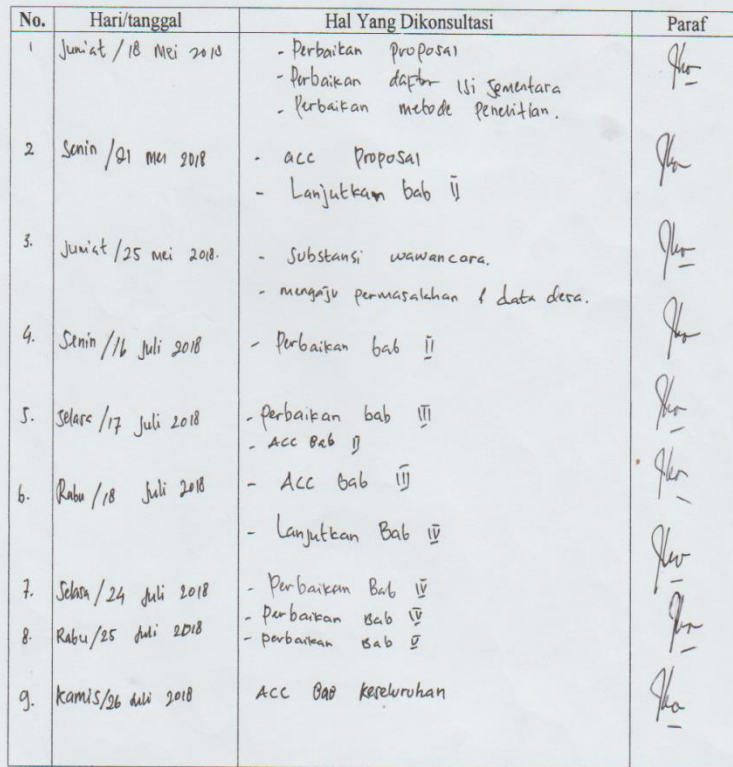 No. Hari/tanggal Hal Yang Dikonsultasi Paraf
1 Jum'at / 18 Mei 2018 - Perbaikan Proposal
- Perbaikan daftar isi sementara
- Perbaikan metode penelitian.
2 Senin / 21 Mei 2018 - acc Proposal
- Lanjutkan bab II
3. Jum'at / 25 mei 2018. - Substansi wawancara.
- mengaju permasalahan & data desa.
4. Senin / 16 Juli 2018 - Perbaikan bab II
5. Selasa / 17 Juli 2018 - perbaikan bab III
- ACC Bab II
6. Rabu / 18 Juli 2018 - ACC Bab III
- Lanjutkan Bab IV
7. Selasa / 24 Juli 2018 - Perbaikan Bab IV
- Perbaikan Bab IV
8. Rabu / 25 Juli 2018 - perbaikan Bab V
9. Kamis / 26 Juli 2018 ACC Bab Keseluruhan